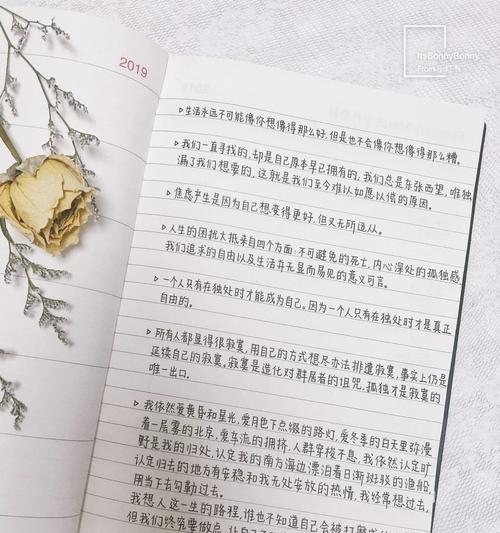 ItsBonnyBonny
2019
▷生活永远不可能像你想像得那么好,但是也不会像你想像得那么糟。
▷我们一直寻找的,却是自己原本早已拥有的,我们总是东张西望,唯独
漏了我们想要的,这就是我们至今难以如愿以偿的原因。
▷焦虑产生是因为自己想变得更好,但又无所适从。
▷人生的困扰大抵来自四个方面:不可避免的死亡,内心深处的孤独感,
我们追求的自由以及生活并无显而易见的意义可言。
▷一个人只有在独处时才能成为自己。因为一个人只有在独处时才是真正
自由的。
▷所有人都显得很寂寞,用自己的方式想尽办法排遣寂寞,事实上仍是
延续自己的寂寞。寂寞是造化对群居者的诅咒,孤独才是寂寞的
唯一出口。
▷我依然爱黄昏和星光,爱月色下点缀的路灯,爱冬季的白天里弥漫
着一层雾的北京,爱车流的拥挤,人群穿梭不息,我依然认定旷
野是我的归处,认定我的南方海边漂泊着日渐斑驳的渔船,
认定归去的地方有安稳和我无处安放的热情,我经常想过去,
用当下去勾勒过去。
我想人这一生的路程,谁也不知道自己会被打磨成
但我们终究要做点,让自己